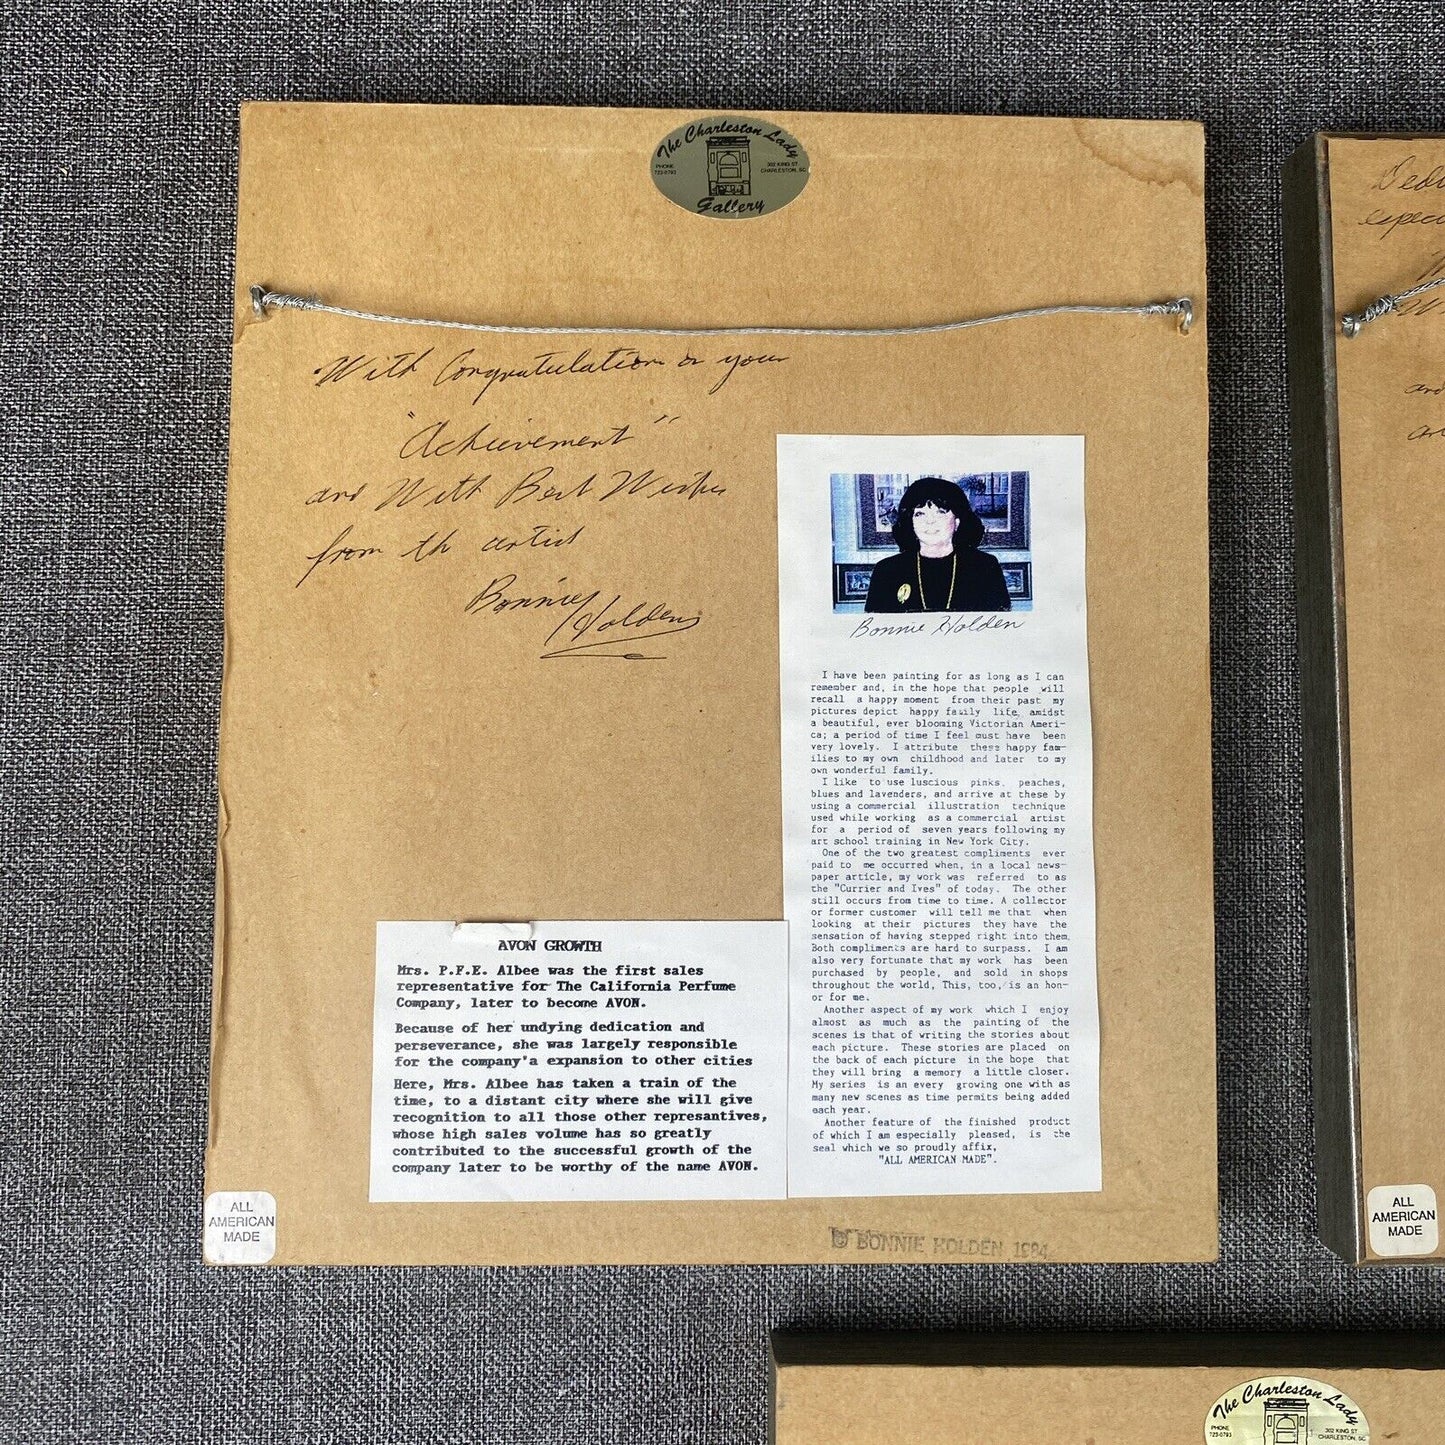 The Charleston Lady
PHONE
723-0793
302 KING ST
CHARLESTON, SC
Gallery
With Congratulation on your
"Achievement"
and With Best Wishes
from the artist
Bonnie Holden
Bonnie Holden
I have been painting for as long as I can
remember and, in the hope that people will
recall a happy moment from their past my
pictures depict happy family life, amidst
a beautiful, ever blooming Victorian Ameri-
ca; a period of time I feel must have been
very lovely. I attribute these happy fam-
ilies to my own childhood and later to my
own wonderful family.
I like to use luscious pinks, peaches,
blues and lavenders, and arrive at these by
using a commercial illustration technique
used while working as a commercial artist
for a period of seven years following my
art school training in New York City.
One of the two greatest compliments ever
paid to me occurred when, in a local news-
paper article, my work was referred to as
the "Currier and Ives" of today. The other
still occurs from time to time. A collector
or former customer will tell me that when
looking at their pictures they have the
sensation of having stepped right into them.
Both compliments are hard to surpass. I am
also very fortunate that my work has been
purchased by people, and sold in shops
throughout the world, This, too, is an hon-
or for me.
Another aspect of my work which I enjoy
almost as much as the painting of the
scenes is that of writing the stories about
each picture. These stories are placed on
the back of each picture in the hope that
they will bring a memory a little closer.
My series is an every growing one with as
many new scenes as time permits being added
each year.
Another feature of the finished product
of which I am especially pleased, is the
seal which we so proudly affix,
"ALL AMERICAN MADE".
AVON GROWTH
Mrs. P.F.E. Albee was the first sales
representative for The California Perfume
Company, later to become AVON.
Because of her undying dedication and
perseverance, she was largely responsible
for the company'a expansion to other cities
Here, Mrs. Albee has taken a train of the
time, to a distant city where she will give
recognition to all those other represantives,
whose high sales volume has so greatly
contributed to the successful growth of the
company later to be worthy of the name AVON.
ALL
AMERICAN
MADE
BONNIE HOLDEN 1984
ALL
AMERICAN
MADE
The Charleston Lady
PHONE
723-0793
302 KING ST
CHARLESTON, SC